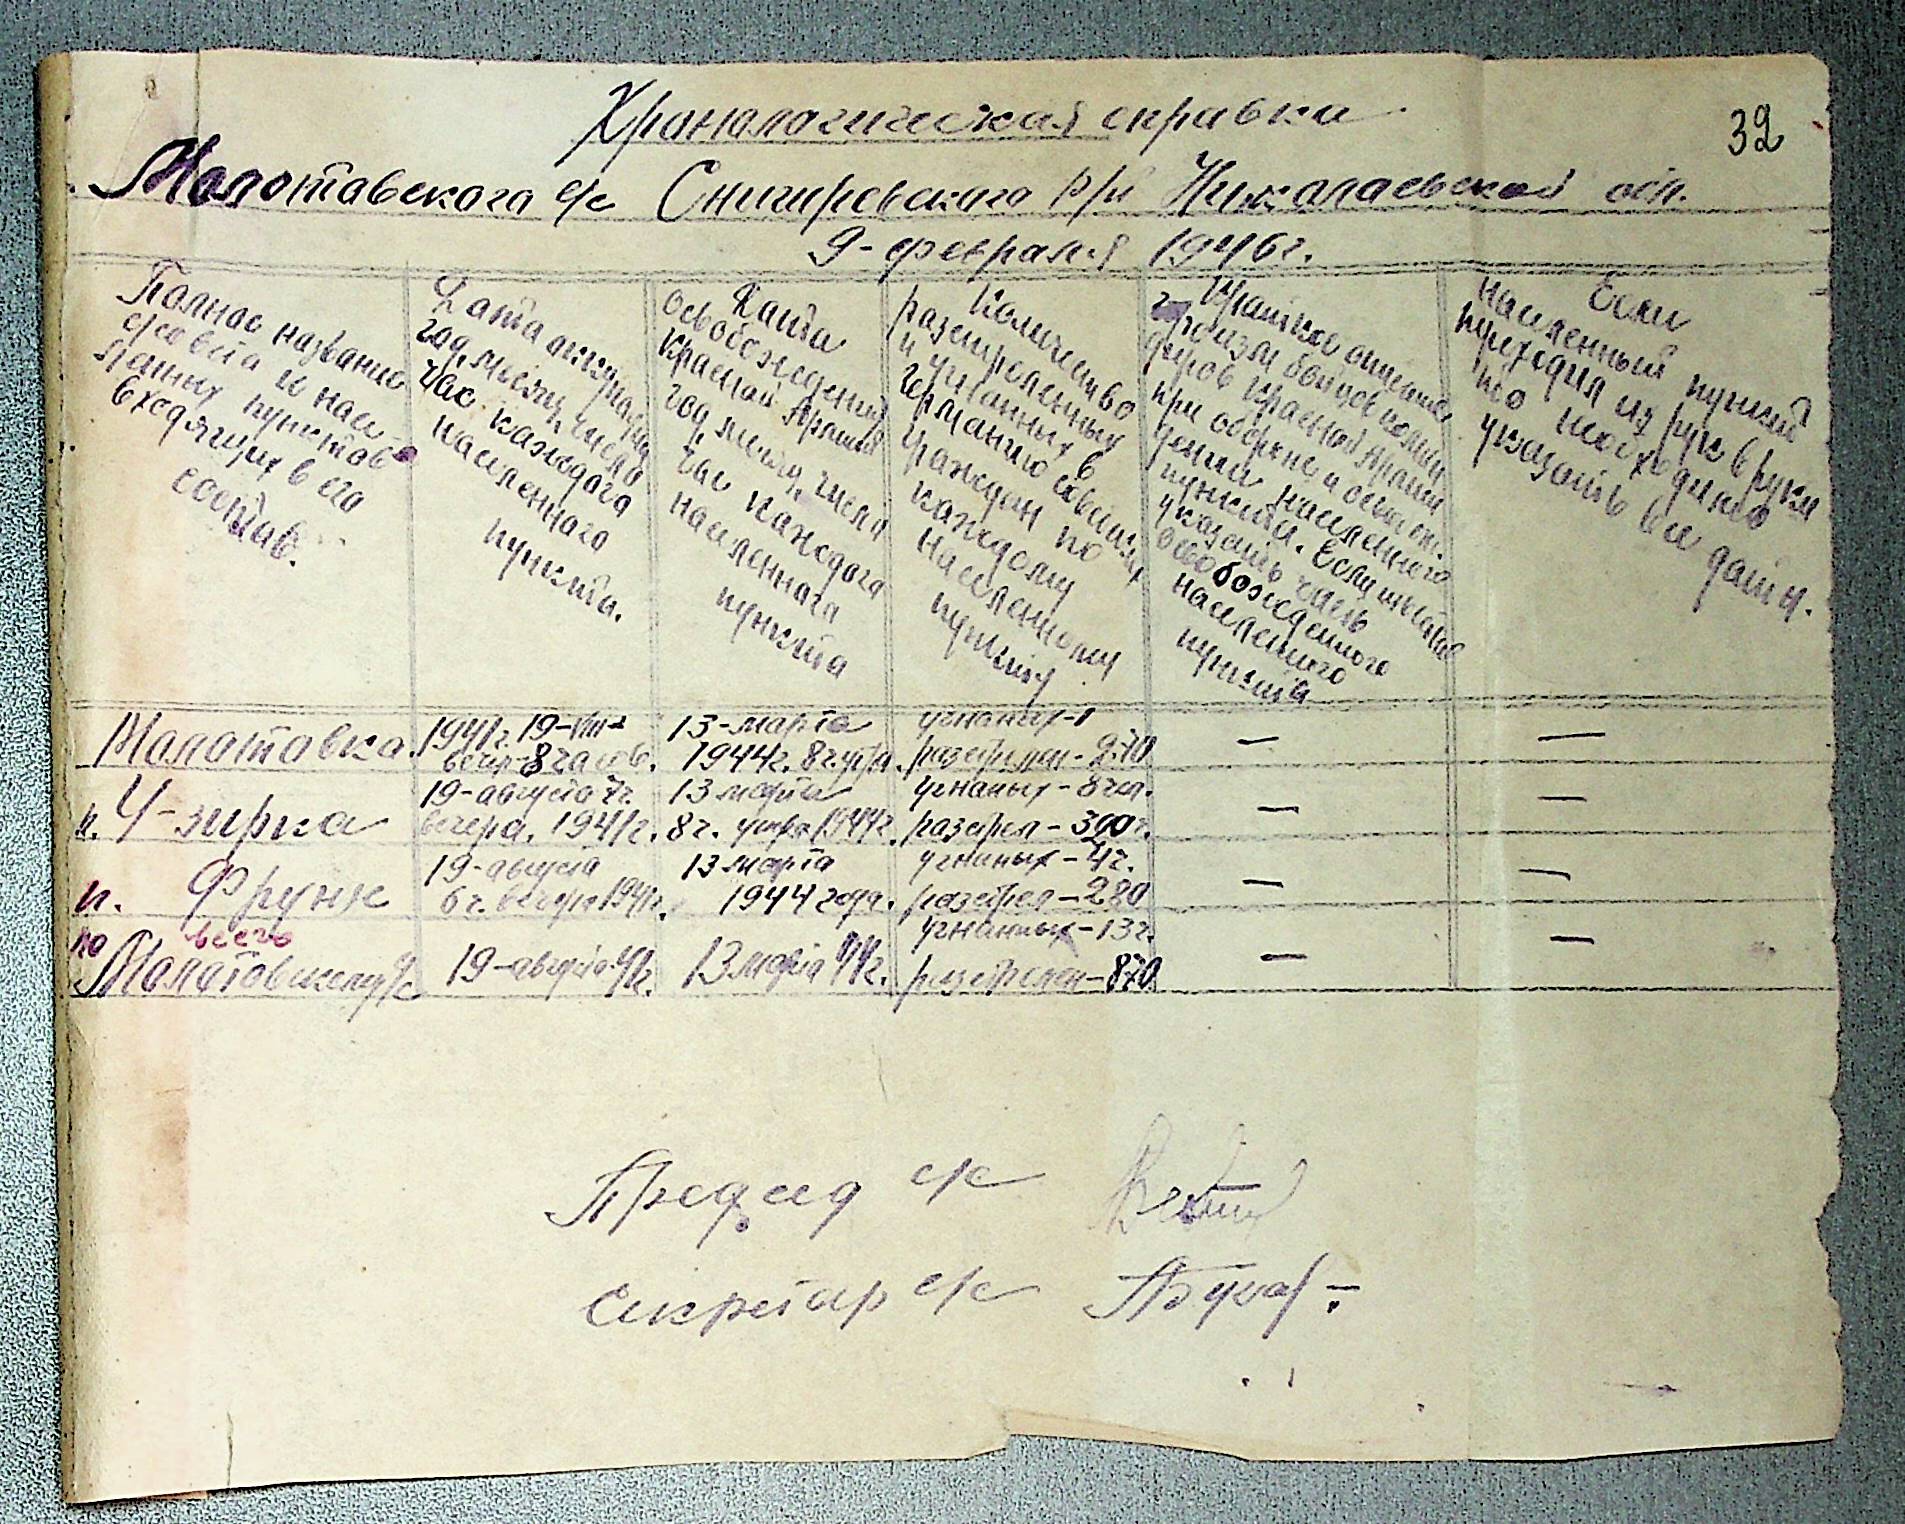 32
Хронологическая справка
Молотавского с/с Снигиревского р/н Николаевской обл.
9-февраля 1946г.
Полное название
с/совета и насе-
ленных пунктов
входящих в его
состав.
Дата оккупации
год, месяц, число
час каждого
населенного
пункта.
Дата
освобождения
Красной Армией
год, месяц, число
час каждого
населеннага
пункта
Количество
расстреленных
и угнанных в
Германию советских
граждан по
каждому
населенному
пункту
Краткое описание
героизм бойцов и команди
диров Красной Армии
при обороне и освобож.
дении населенного
пункта. Если
указать часть
освобожденного
населенного
пункта
Если
населенный пункт
переходил из рук в руки
то необходимо
указать все даты.
Молотовка.
1941г. 19-VIII-
вечер-8 часов.
13-марта
1944г. 8г. утра.
угнаных-1
разстрелян-270
—
—
п. Ч-зирка
19-августа 7г.
вечера. 1941г.
13 марта
8г. утра 1944г.
угнаных-8чел.
разстрел-300г.
—
—
п. Фрунзе
19-августа
6г. вечера 1941г.
13 марта
1944 года.
угнаных-4г.
разстрел-280
—
—
по всего
Молатовскому с/с
19-августа 41г.
13 марта 44г.
угнанных-13г.
разстрелян-870
—
—
Председ с/с
Секретар с/с